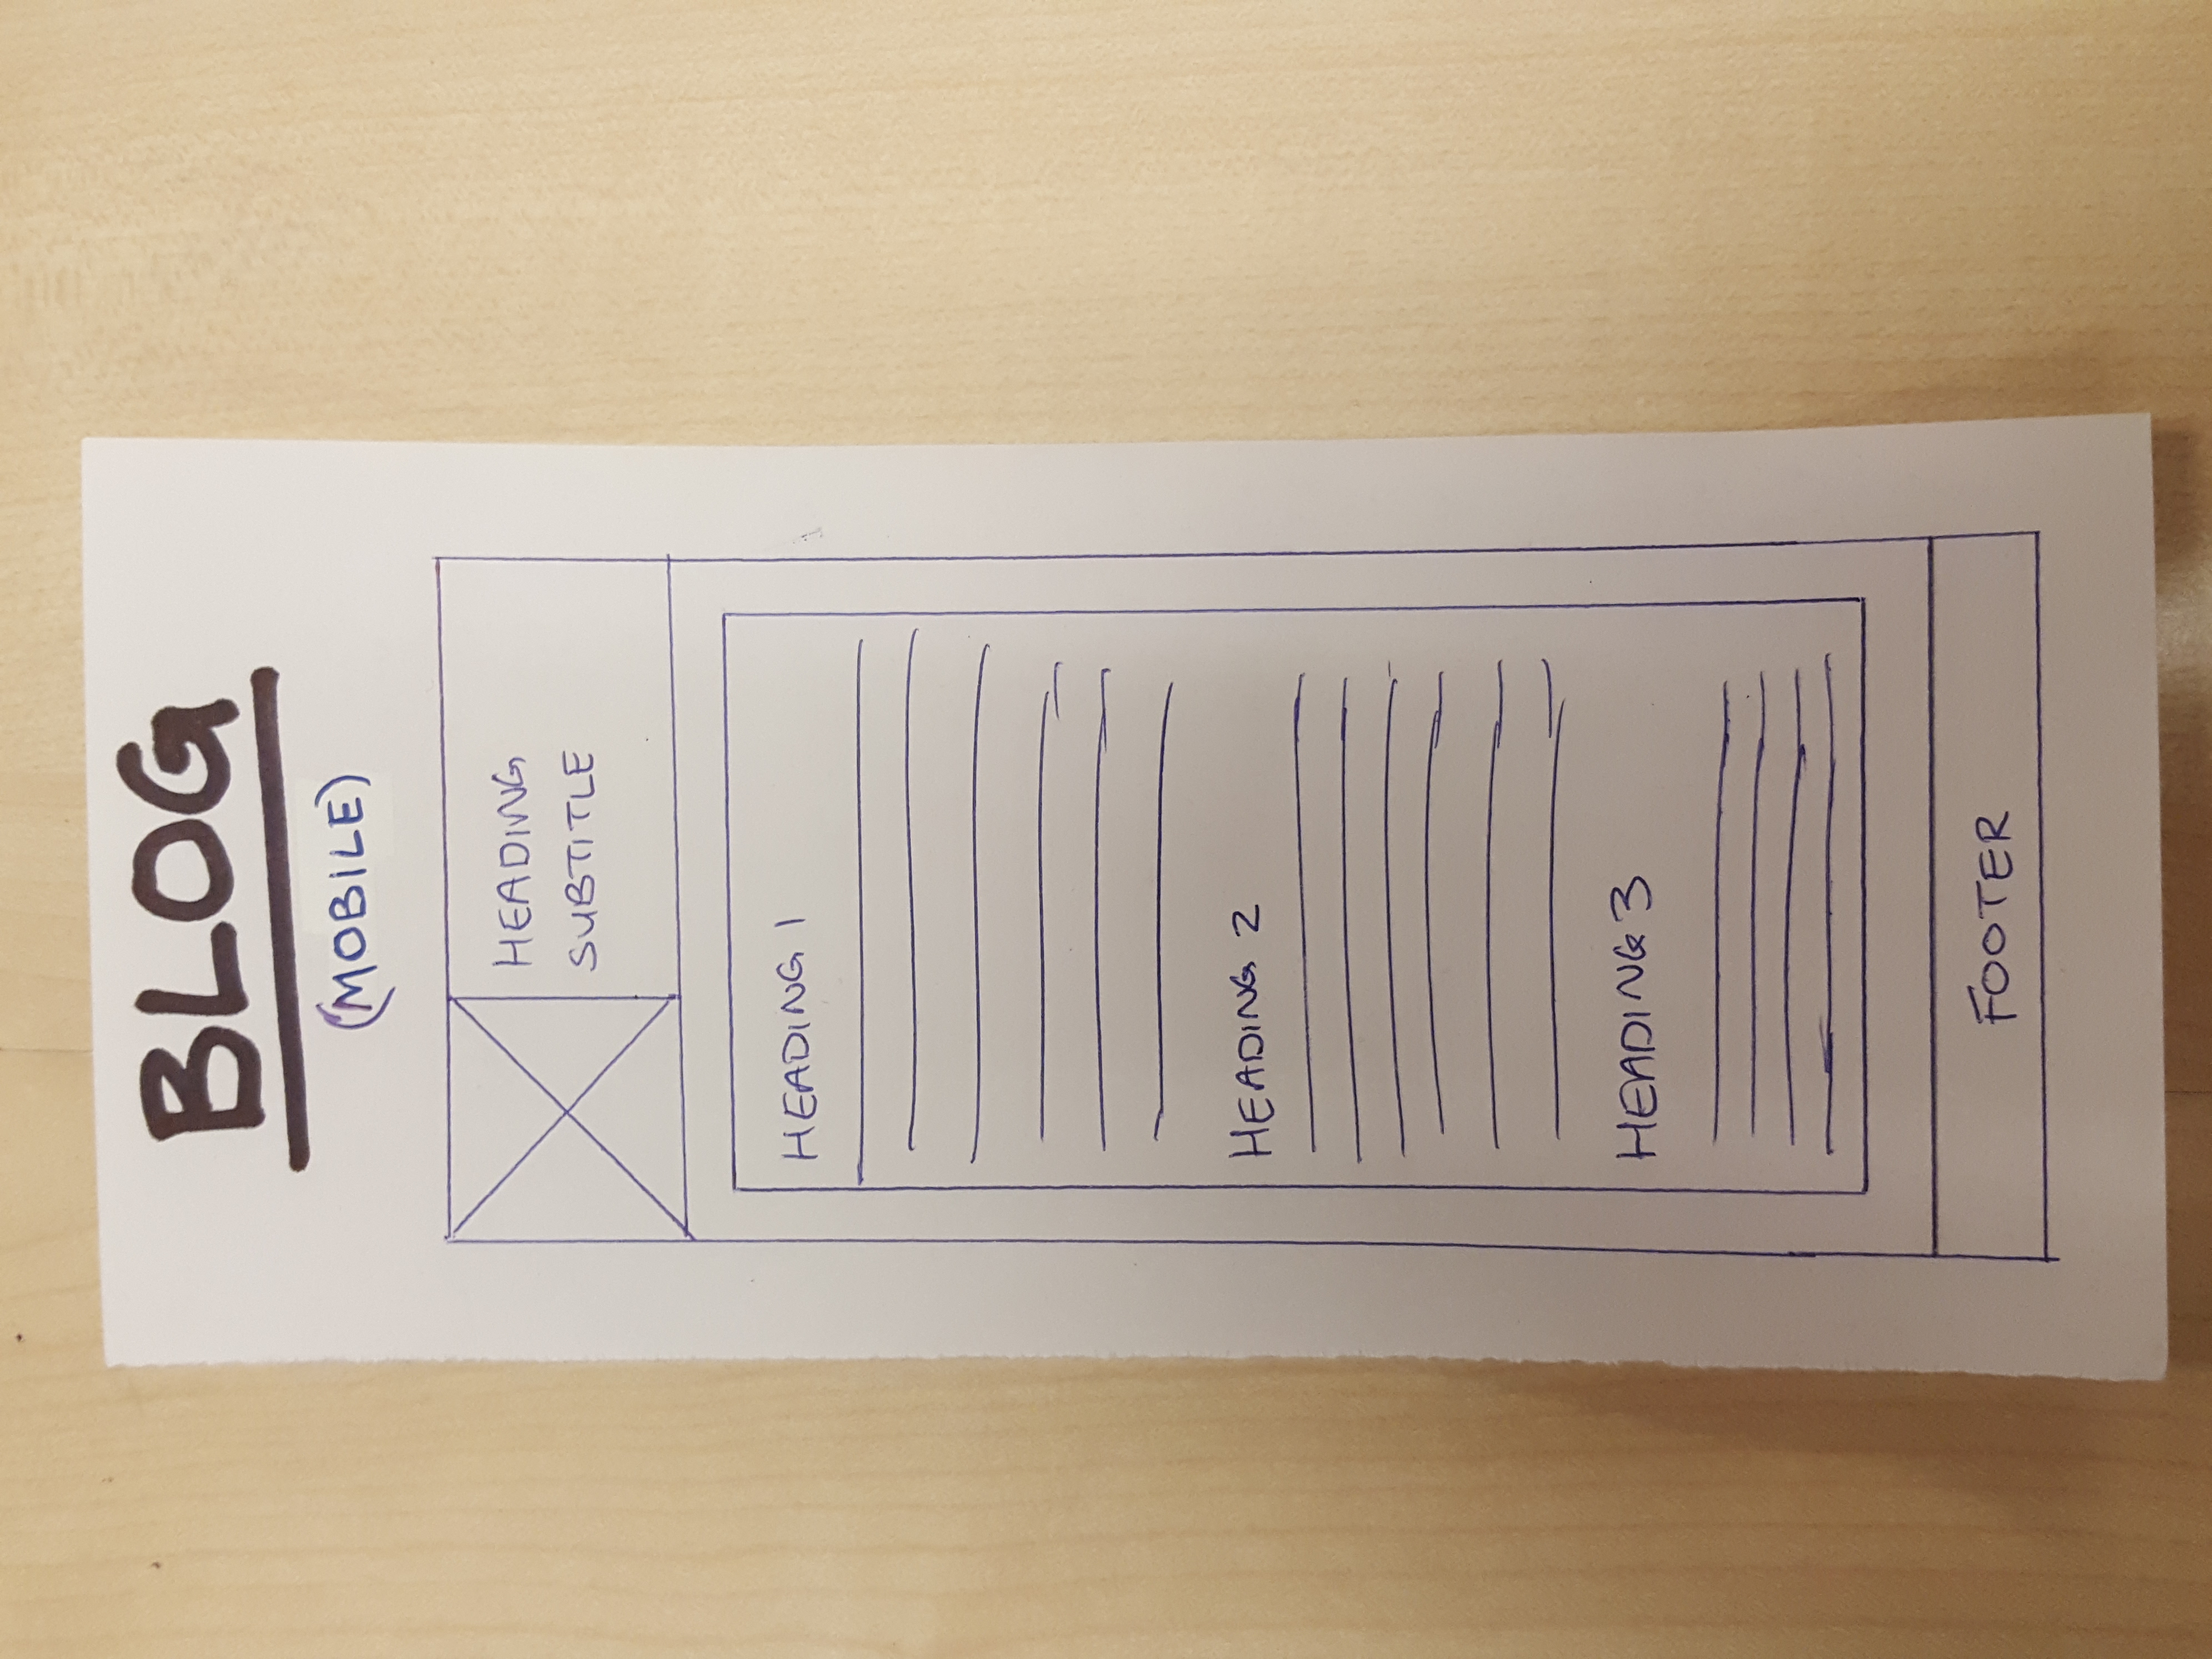 BLOG
(MOBILE)
HEADING
SUBTITLE
HEADING 1
HEADING 2
HEADING 3
FOOTER